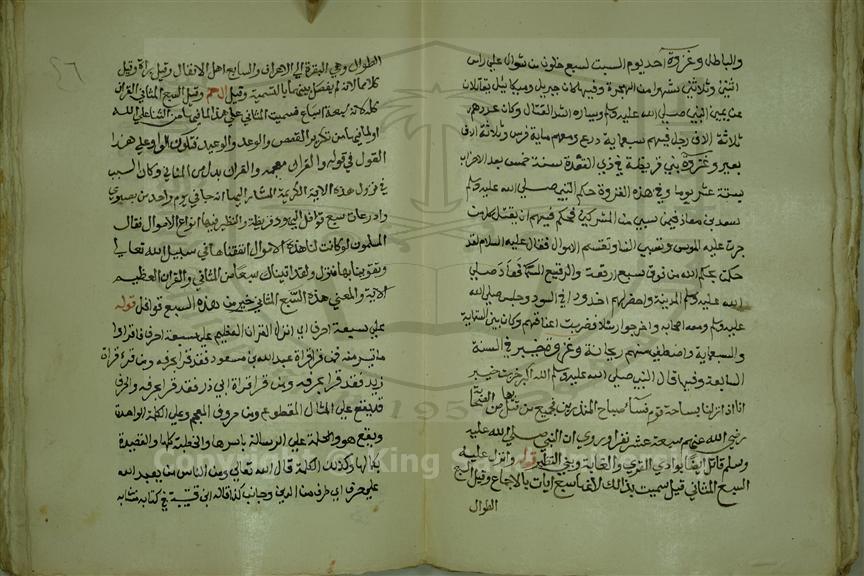 والباطل وغزوة احد يوم السبت لسبع خلون من شوال على راس
اثنين وثلاثين شهرا من الهجرة وفيها كان جبريل وميكائيل يقاتلان
عن يمين النبي صلى الله عليه وسلم ويساره اشد القتال وكان عددهم
ثلاثة الاف رجل فيهم سبعماية درع ومعهم ماية فرس وثلاثة الاف
بعير وغزوة بني قريظة في ذي القعدة سنة خمس بعد الاحزاب
بستة عشر يوما وفي هذه الغزوة حكم النبي صلى الله عليه وسلم
سعد بن معاذ فيمن سبي من المشركين فحكم فيهم ان يقتل كل من
جرت عليه الموسى وتسبى النسا وتقسم الاموال فقال عليه السلام لقد
حكمت بحكم الله من فوق سبع ارقعة والرقيع السما فعاد صلى
الله عليه وسلم المدينة وحفر لهم اخدود في السوق وجلس صلى الله
عليه وسلم ومعه اصحابه واخرجوا رسلا فضربت اعناقهم وكان بين الستماية
والسبعماية واصطفى منهم ريحانة وغزوة خيبر في السنة
السابعة وفيها قال النبي صلى الله عليه وسلم الله اكبر خربت خيبر
انا اذا نزلنا بساحة قوم فسا صباح المنذرين فجميع من قتل بها من الصحابة
رضي الله عنهم سبعة عشر نفرا وروي ان النبي صلى الله عليه
وسلم قاتل ايضا بوادي القرى والغابة وبني النظير قوله وانزل عليه
السبع المثاني قيل سميت بذالك لانها سبع ايات بالاجماع وقيل السبع
الطوال
الطوال وهي البقرة الى الاعراف والسابع اهل الانفال وقيل براة وقيل
كلاهما لانه لم يفصل بينهما بالتسمية وقيل الحم وقيل السبع المثاني القران
كله لانه سبعة اسباع فسميت المثاني على هذا المثاني من الثنا على الله
او المثاني من تكرير القصص والوعد والوعيد فتكون الواو على هذا
القول في قوله والقران مقحمة والقران بدل من المثاني وكان السبب
في نزول هذه الاية الكريمة المشار اليها انه جا في يوم واحد من بصرى
واذرعات سبع قوافل اليهود قريظة والنظير فيها انواع الاموال فقال
المسلمون لو كانت لنا هذه الاموال انفقناها في سبيل الله تعالى
وتقوينا بها فنزل ولقد اتيناك سبعا من المثاني والقران العظيم
الاية والمعنى هذه السبع المثاني خير من هذه السبع قوافل قوله
على سبعة احرف اي انزل القران العظيم على سبعة احرف فاقراوا
ما تيسر منه فمن قرا قراة عبد الله بن مسعود فقد قرا بحرفه ومن قرا قراة
زيد فقد قرا بحرفه ومن قرا قراة ابي ذر فقد قرا بحرفه والحرف
قد يقع على المثال المقطوع من حروف المعجم وعلى الكلمة الواحدة
ويقع هو والكلمة على الرسالة باسرها والخطبة كلها والقصيدة
بكمالها وكذلك الكلمة قال الله تعالى ومن الناس من يعبد الله
على حرف اي طرف من الدين وجانب كذا قاله ابن قتيبة في كتابه متشابه
Copyright © King Saud University
195